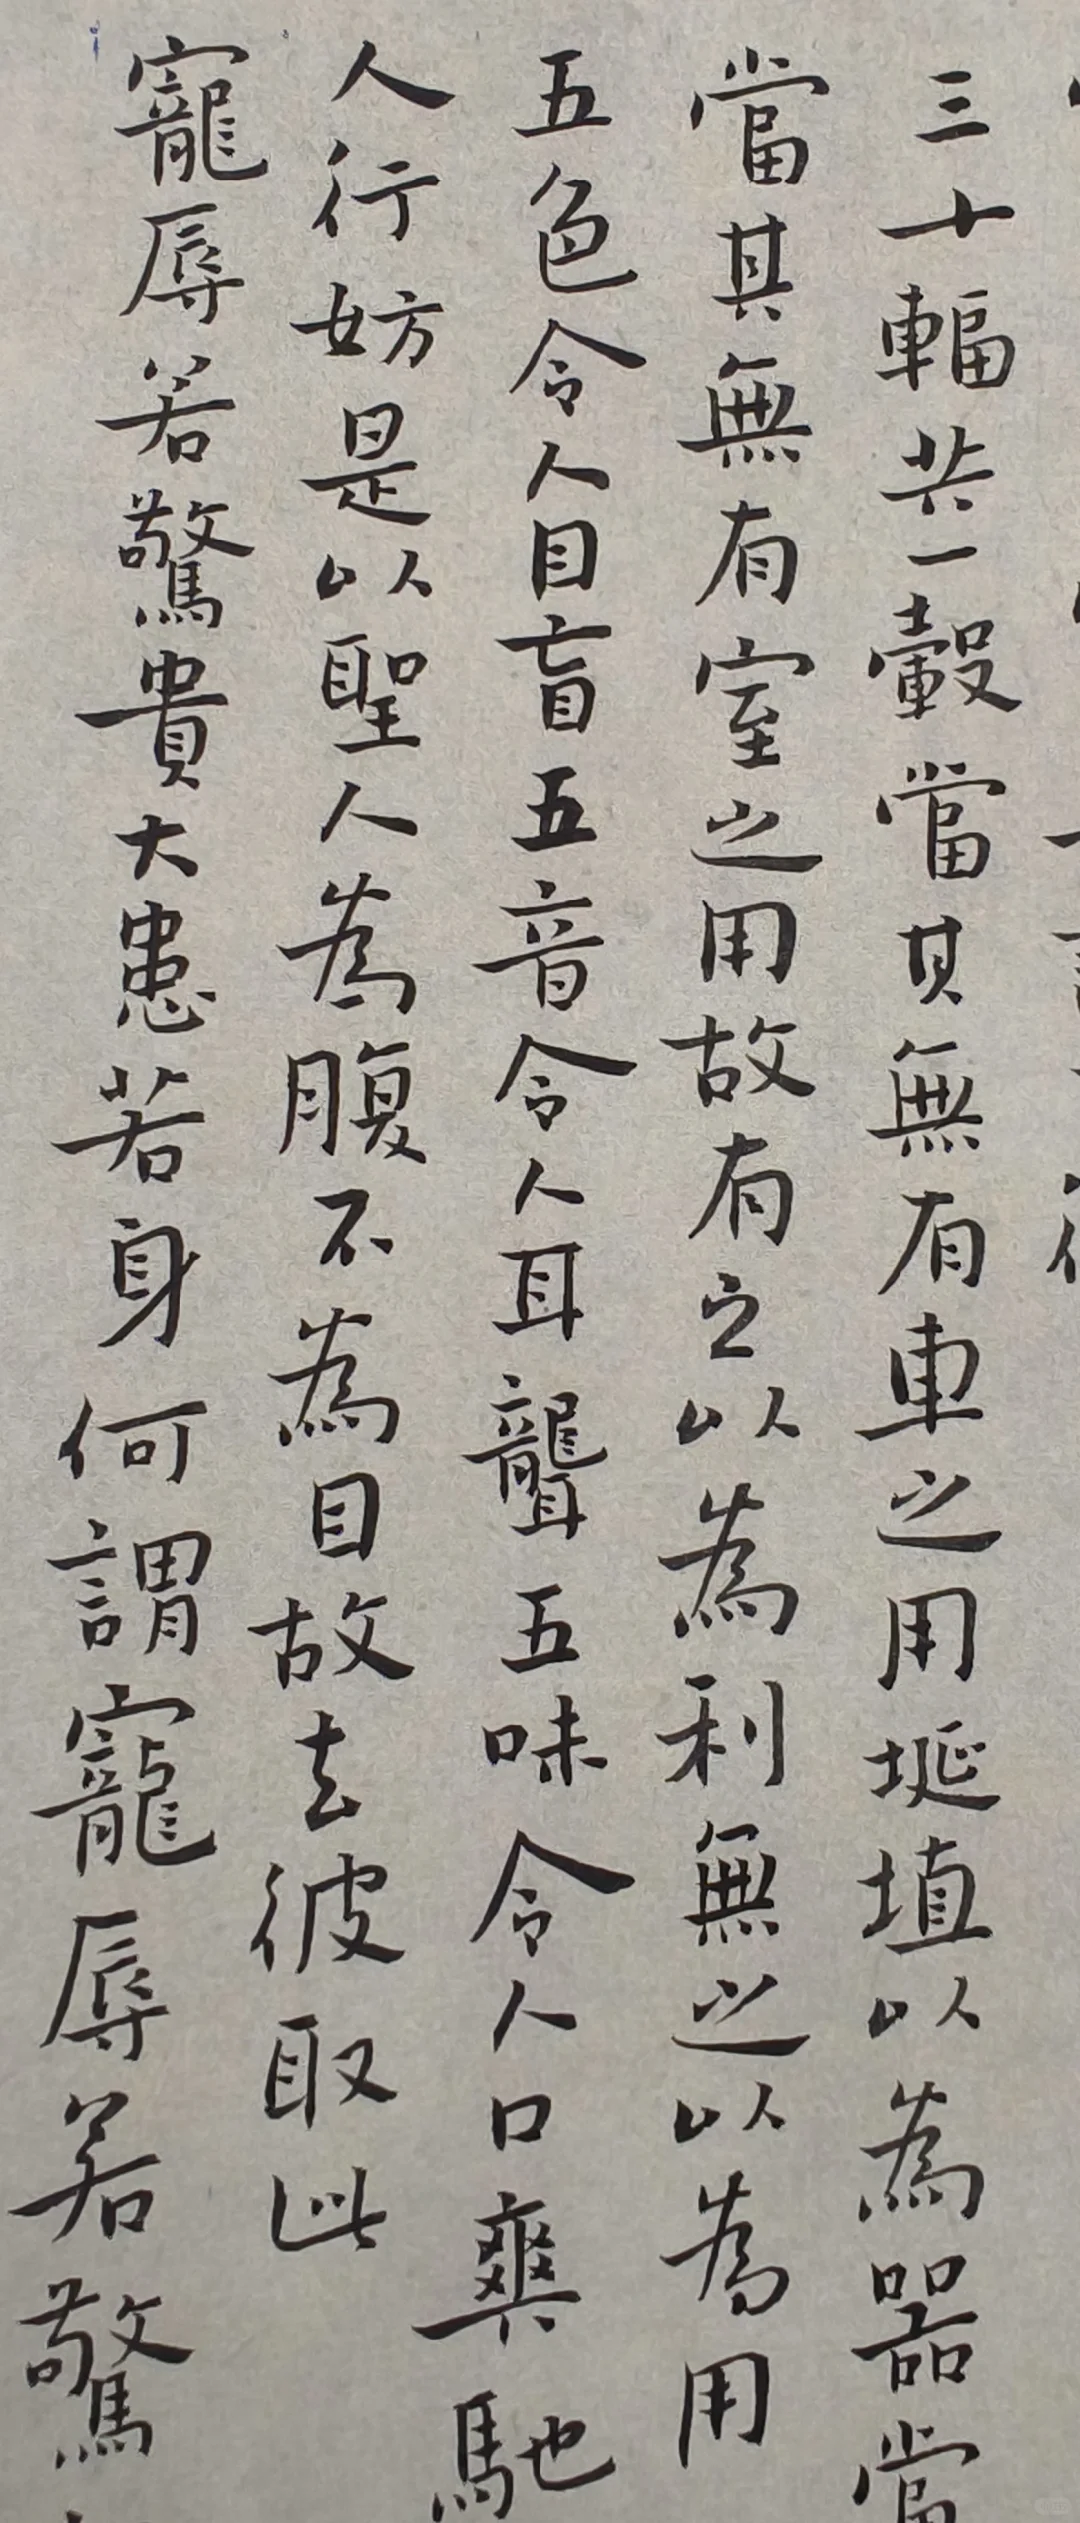 三十輻共一轂當其無有車之用埏埴以為器當
當其無有室之用故有之以為利無之以為用
五色令人目盲五音令人耳聾五味令人口爽馳
人行妨是以聖人為腹不為目故去彼取此
寵辱若驚貴大患若身何謂寵辱若驚